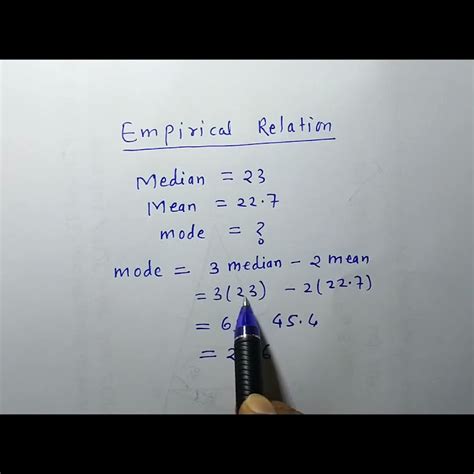 Empirical Relation
Median = 23
Mean = 22.7
mode = ?
mode = 3 median - 2 mean
= 3(23) - 2(22.7)
= 6 45.4
= 2 6